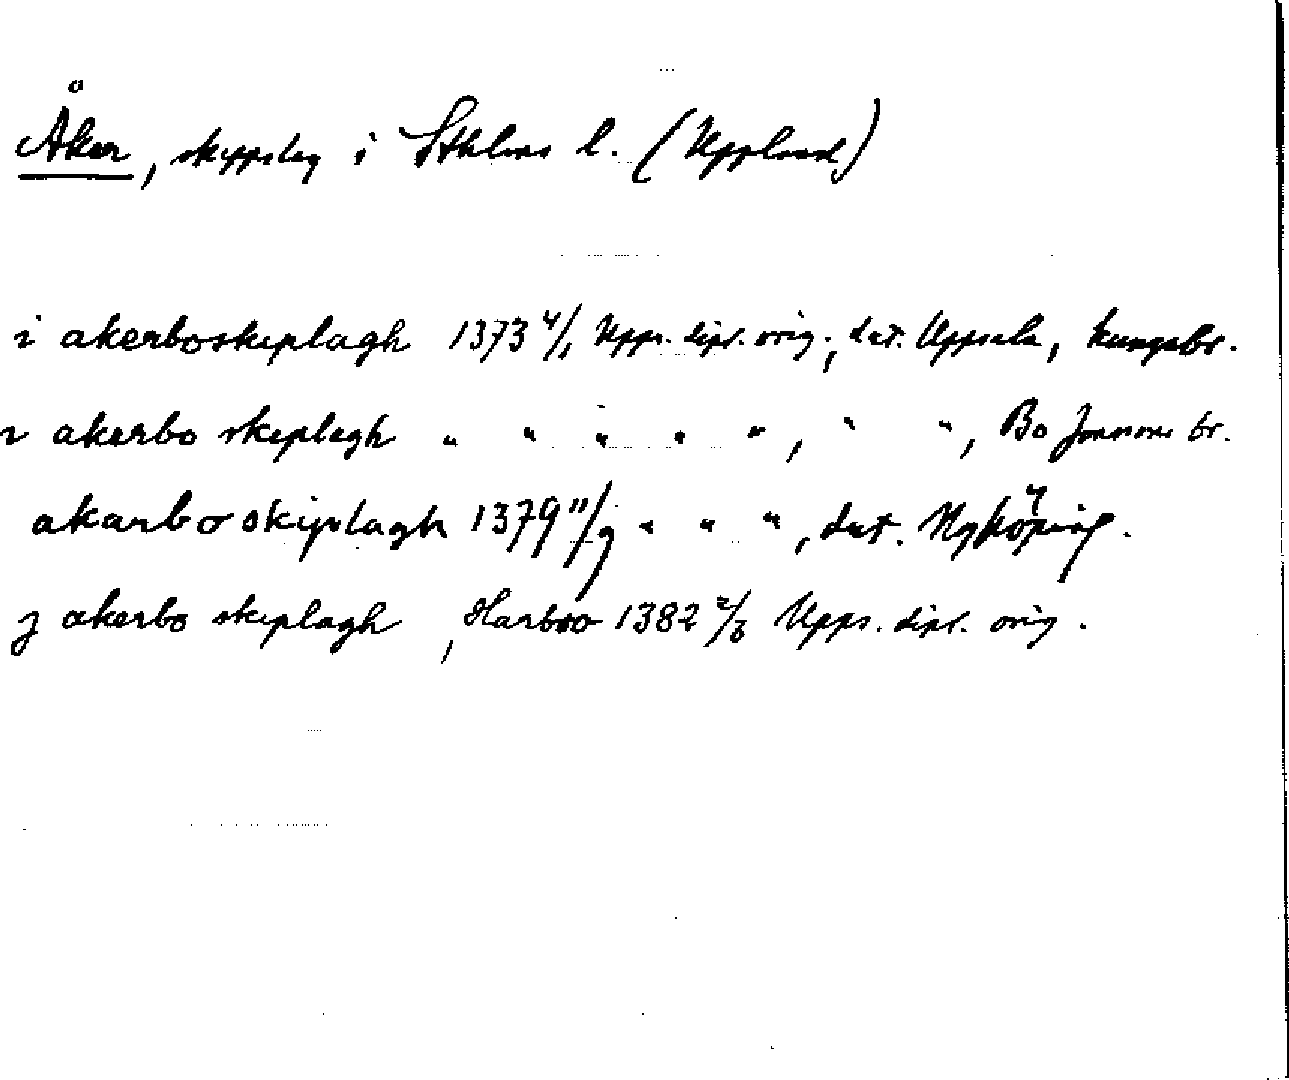 Åker, skeppslag i Sthlms l. (Uppland)
i akerboskeplagh 1373 4/1 Upps. dipl. orig., dat. Uppsala, kungabr.
akerbo skeplagh " " " " ", " ", Bo Jonssons br.
akarbo skiplagh 1379 11/9 " " ", dat. Nyköping.
j akerbo skeplagh, Harboo 1382 2/3 Upps. dipl. orig.